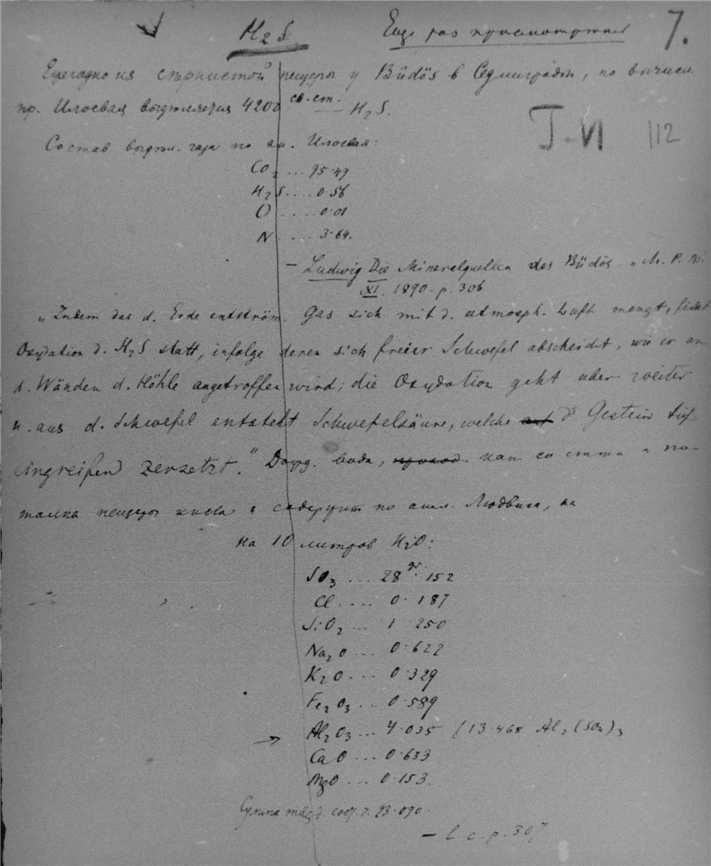 H₂S Еще раз просмотрѣть 7.
Ежегодно из сѣрнистой пещеры у Büdös в Седмиградіи, по вычисл.
пр. Илосвая выдѣляется 4200 cb. cm. H₂S.
T-VI 112
Состав выдѣл. газа по ан. Илосвая:
CO₂ ... 95.49
H₂S .... 0.56
O .... 0.01
N ... 3.64.
— Ludwig Die Mineralquellen des Büdös „M. P. M.
XI. 1890. p. 306
„Indem das d. Erde entström. Gas sich mit d. atmosph. Luft mengt, findet
Oxydation d. H₂S statt, infolge deren sich freier Schwefel abscheidet, wie er an
d. Wänden d. Höhle angetroffen wird; die Oxydation geht aber weiter
u. aus d. Schwefel entsteht Schwefelsäure, welche d. Gestein tief-
eingreifend zersetzt." вода, кап со стѣн и по-
толка пещеры кисла и содержит по анал. Людвига, на
на 10 литров H₂O:
SO₃ ... 28 gr. 152
Cl .... 0.187
SiO₂ ... 1.250
Na₂O ... 0.622
K₂O ... 0.329
Fe₂O₃ ... 0.589
→ Al₂O₃ ... 4.035 (13.468 Al₂(SO₄)₃
CaO ... 0.633
MgO ... 0.153.
Сумма 23.090.
— l. c. p. 307